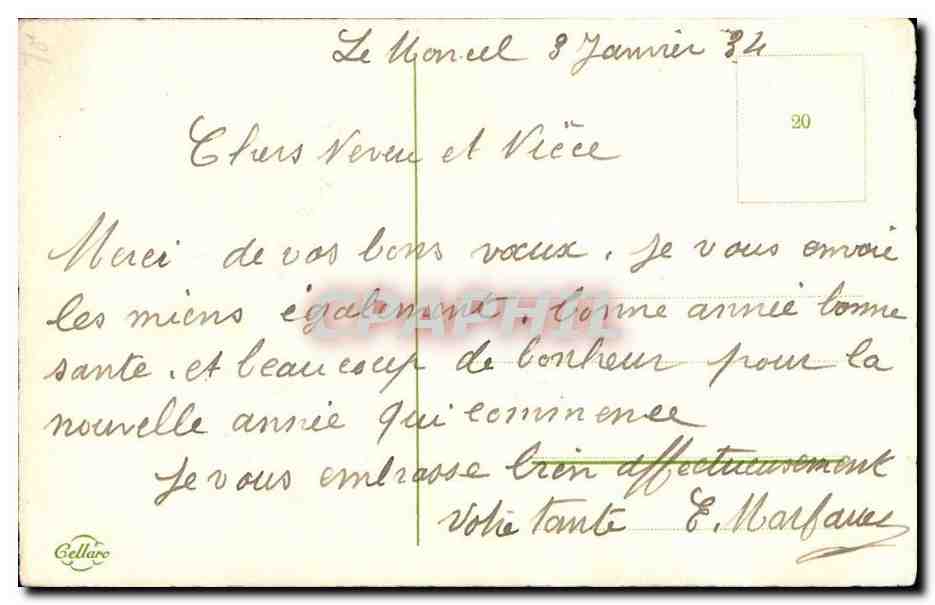 Le Moncel 3 Janvier 34
20
Chers Neveu et Nièce
Merci de vos bons vœux. Je vous envoie
les miens également. bonne année bonne
sante. et beaucoup de bonheur pour la
nouvelle année qui commence
Je vous embrasse bien affectueusement
Votre tante E.
Cellaro
CPAPHIL